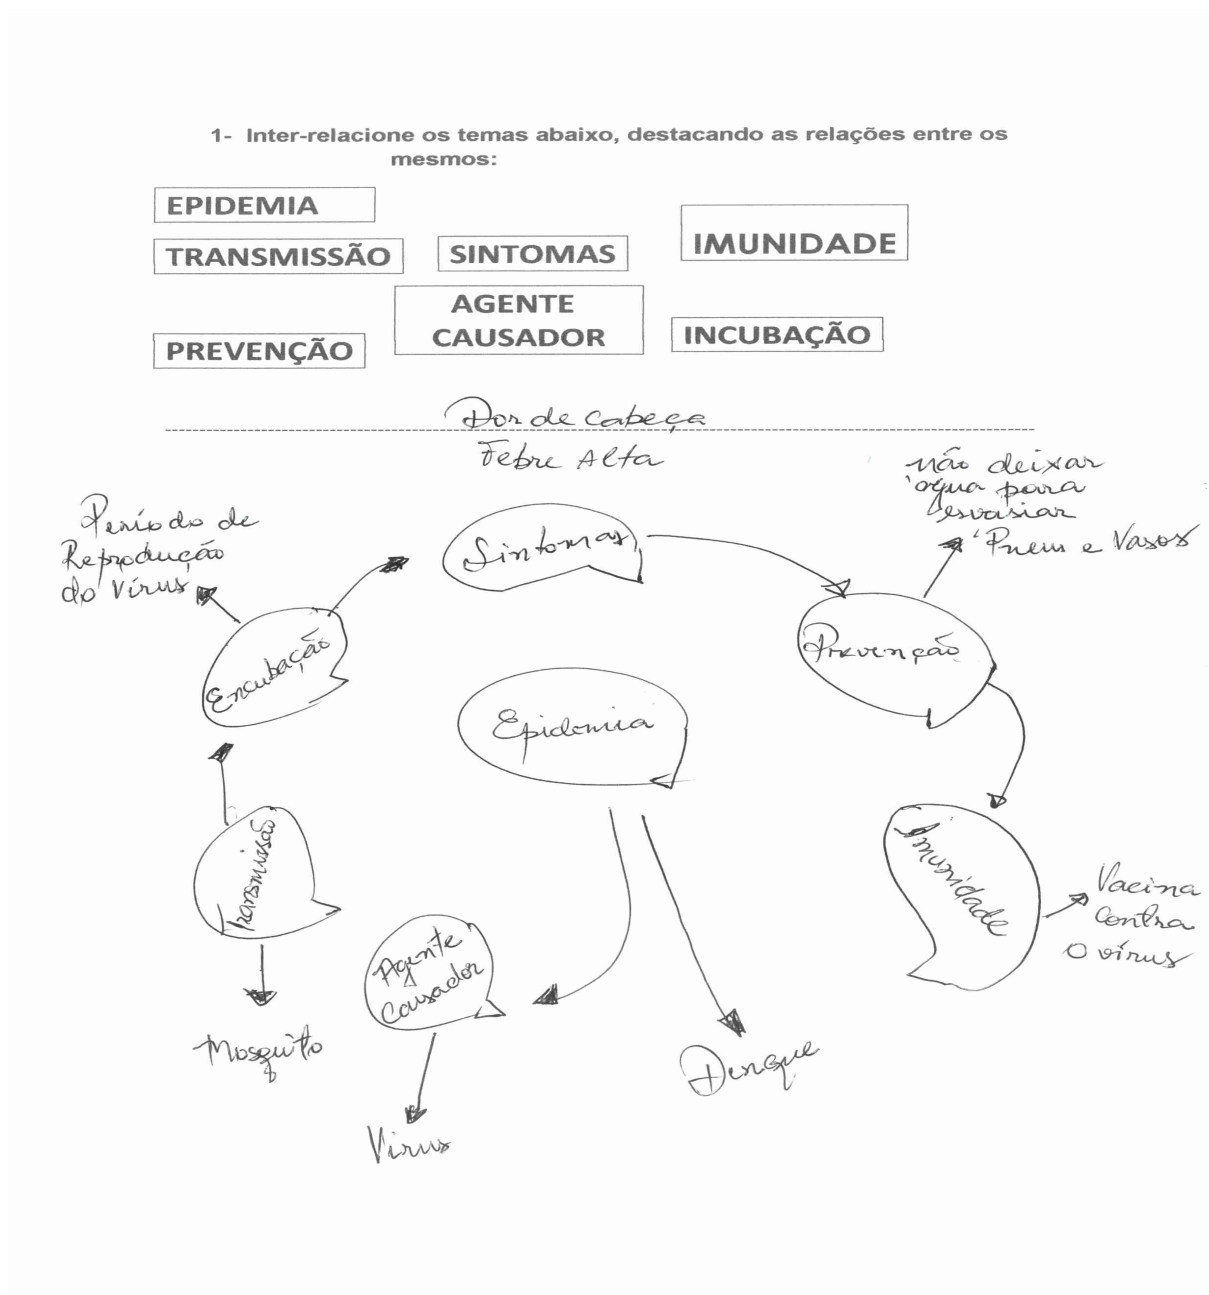 1- Inter-relacione os temas abaixo, destacando as relações entre os
mesmos:
EPIDEMIA
TRANSMISSÃO
SINTOMAS
IMUNIDADE
AGENTE
CAUSADOR
PREVENÇÃO
INCUBAÇÃO
Dor de cabeça
Febre Alta
não deixar
água para
esvasiar
Pneus e Vasos
Período de
Reprodução
do Vírus
Sintomas
Prevenção
Encubação
Epidemia
Transmissão
Imunidade
Vacina
contra
o vírus
Agente
Causador
Mosquito
Dengue
Vírus